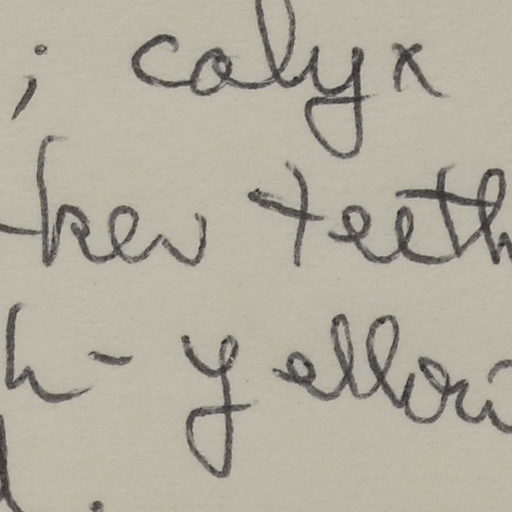 ; calyx
-ker teeth
h-yellow